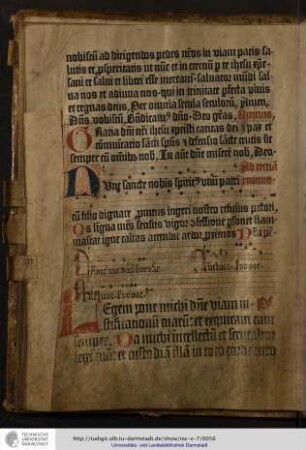 nobiscũ ad dirigendos pedes nr̃os in viam pacis sa
lutis et ꝓsperitatis ut nũc et in eternũ p te ihesu xp̃e
sani et salui et liberi esse meream̃ Saluator mũdi sal
ua nos et adiuua nos qui in trinitate ꝑfecta viuis
et regnas deus Per omnia secula seculorũ Amen
Dñs vobiscũ Bñdicam9 dño Deo grãs
Gracia dñi nr̃i ihesu xpisti caritas dei ⁊ pax et
cõmunicatio sãcti sp̃us ⁊ defensio sãcte crucis sit
semper cũ oĩnibs nob Tu aut dñe miserẽ nob Deo
Ad terciã
Nunc sancte nobis spiritus vnũ patri
cũ filio dignare ꝓmptus ingeri nostro refusus pectori
Os ligua mẽs sensus vigor cõfessione ꝑsonet flam
mascat igne caritas accendat ardor proximos
Legem pone michi dñe viam iu
stificationũ tuarũ et exquiram eam
semper Da michi intellectũ et scrutabor
legẽ tuã et custodiã illã in toto corde meo
TECHNISCHE
UNIVERSITÄT
DARMSTADT
http://tudigit.ulb.tu-darmstadt.de/show/inc-v-7/0056
Universitäts- und Landesbibliothek Darmstadt